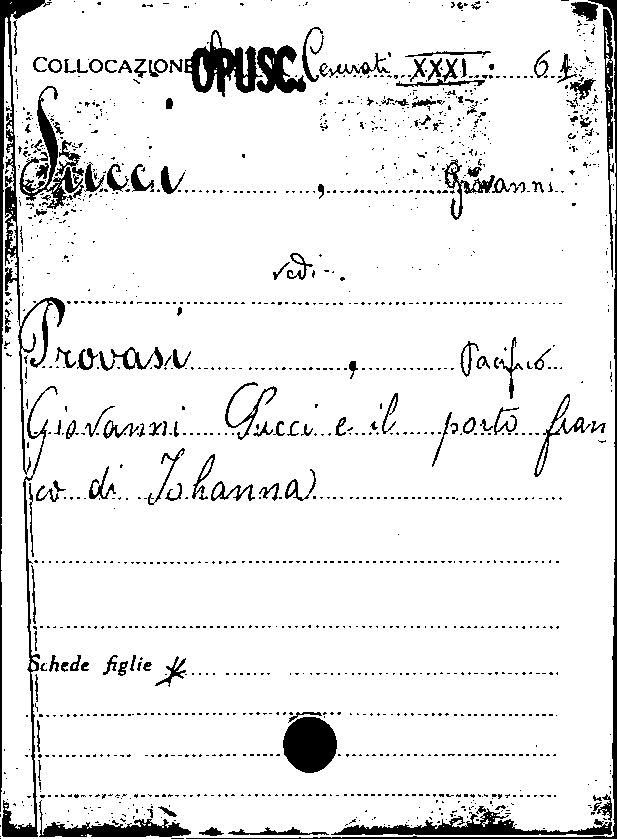 COLLOCAZIONE OPUSC. Cerurati XXXI. 61
Succi, Giovanni
vedi.
Provasi, Pacifico
Giovanni Succi e il porto fran
co di Johanna
Schede figlie